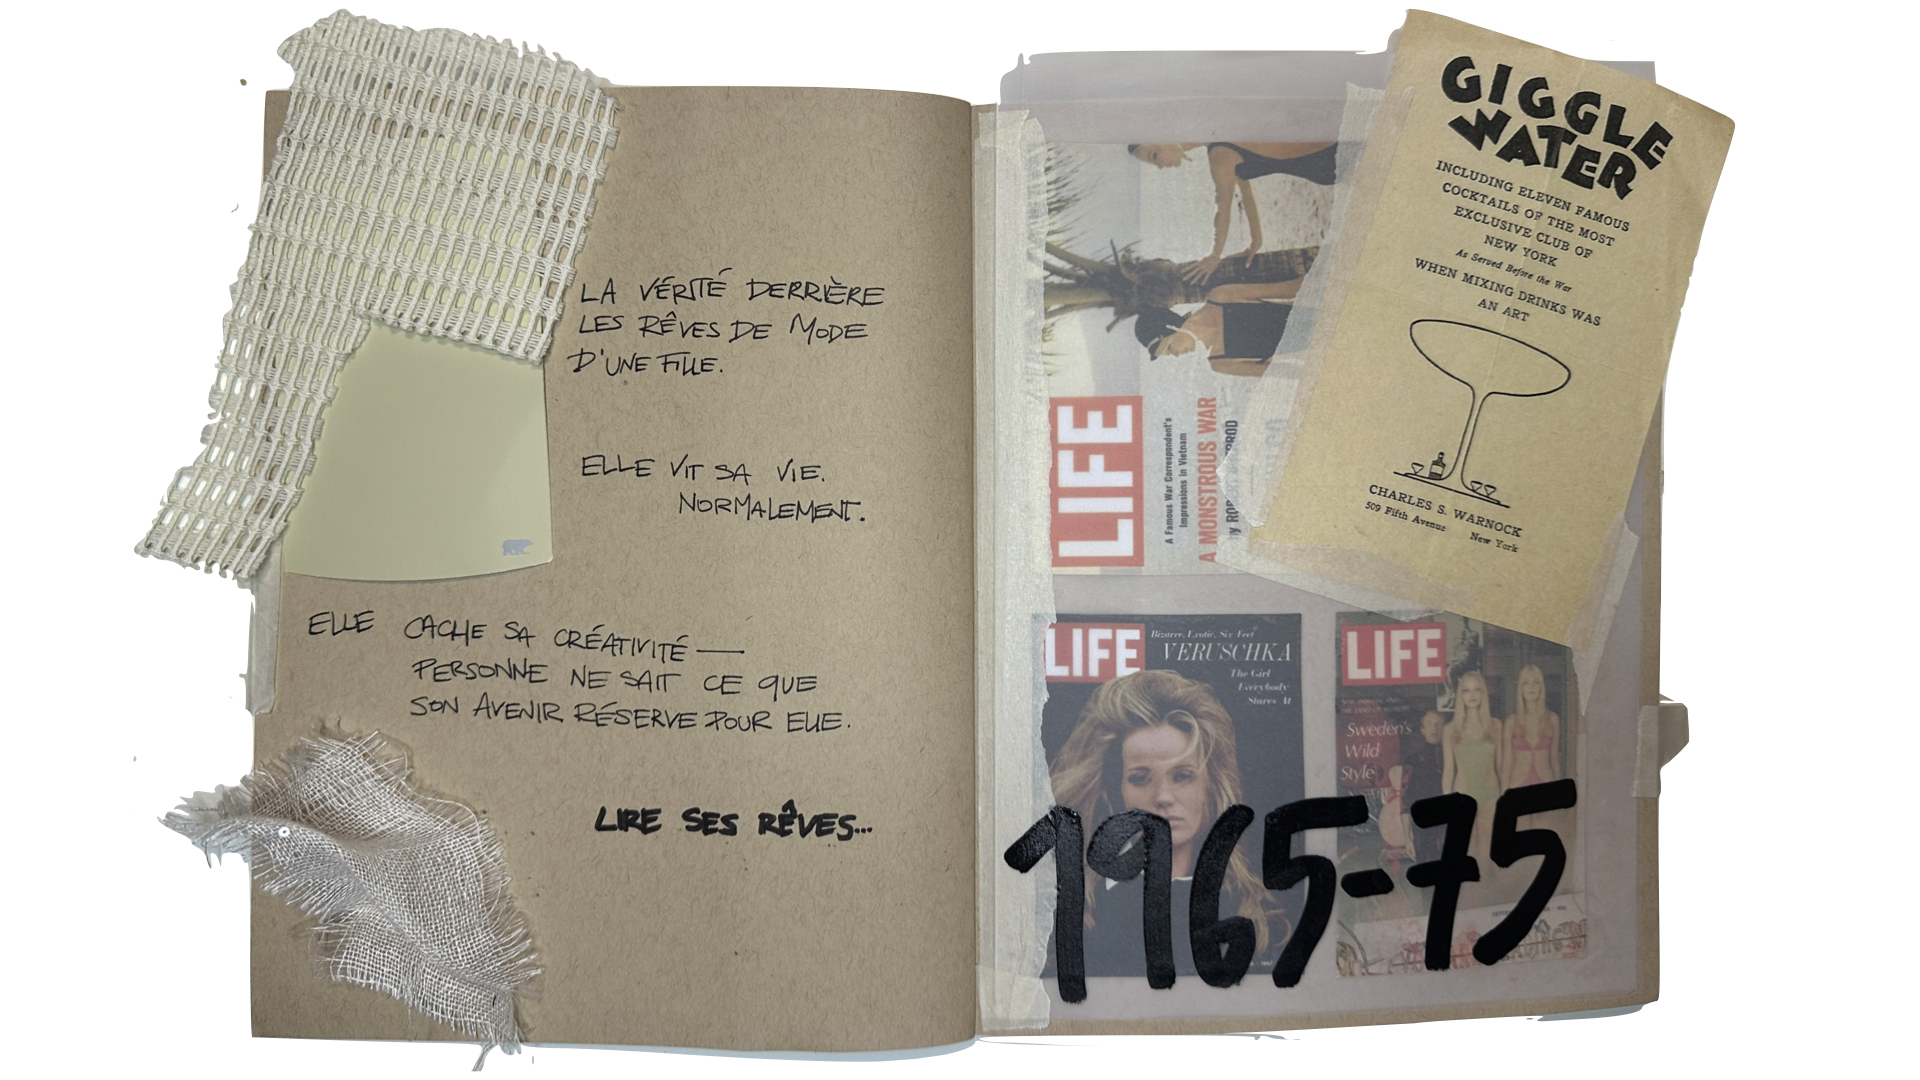 LA VÉRITÉ DERRIÈRE
LES RÊVES DE MODE
D'UNE FILLE.
ELLE VIT SA VIE.
NORMALEMENT.
ELLE CACHE SA CRÉATIVITÉ —
PERSONNE NE SAIT CE QUE
SON AVENIR RÉSERVE POUR ELLE.
LIRE SES RÊVES...
GIGGLE
WATER
INCLUDING ELEVEN FAMOUS
COCKTAILS OF THE MOST
EXCLUSIVE CLUB OF
NEW YORK
As Served Before the War
WHEN MIXING DRINKS WAS
AN ART
CHARLES S. WARNOCK
509 Fifth Avenue New York
LIFE
A Famous War Correspondent's
Impressions in Vietnam
A MONSTROUS WAR
LIFE
Bizarre, Exotic, Six Feet
VERUSCHKA
The Girl
Everybody
Stares At
LIFE
Sweden's
Wild
Style
1965-75